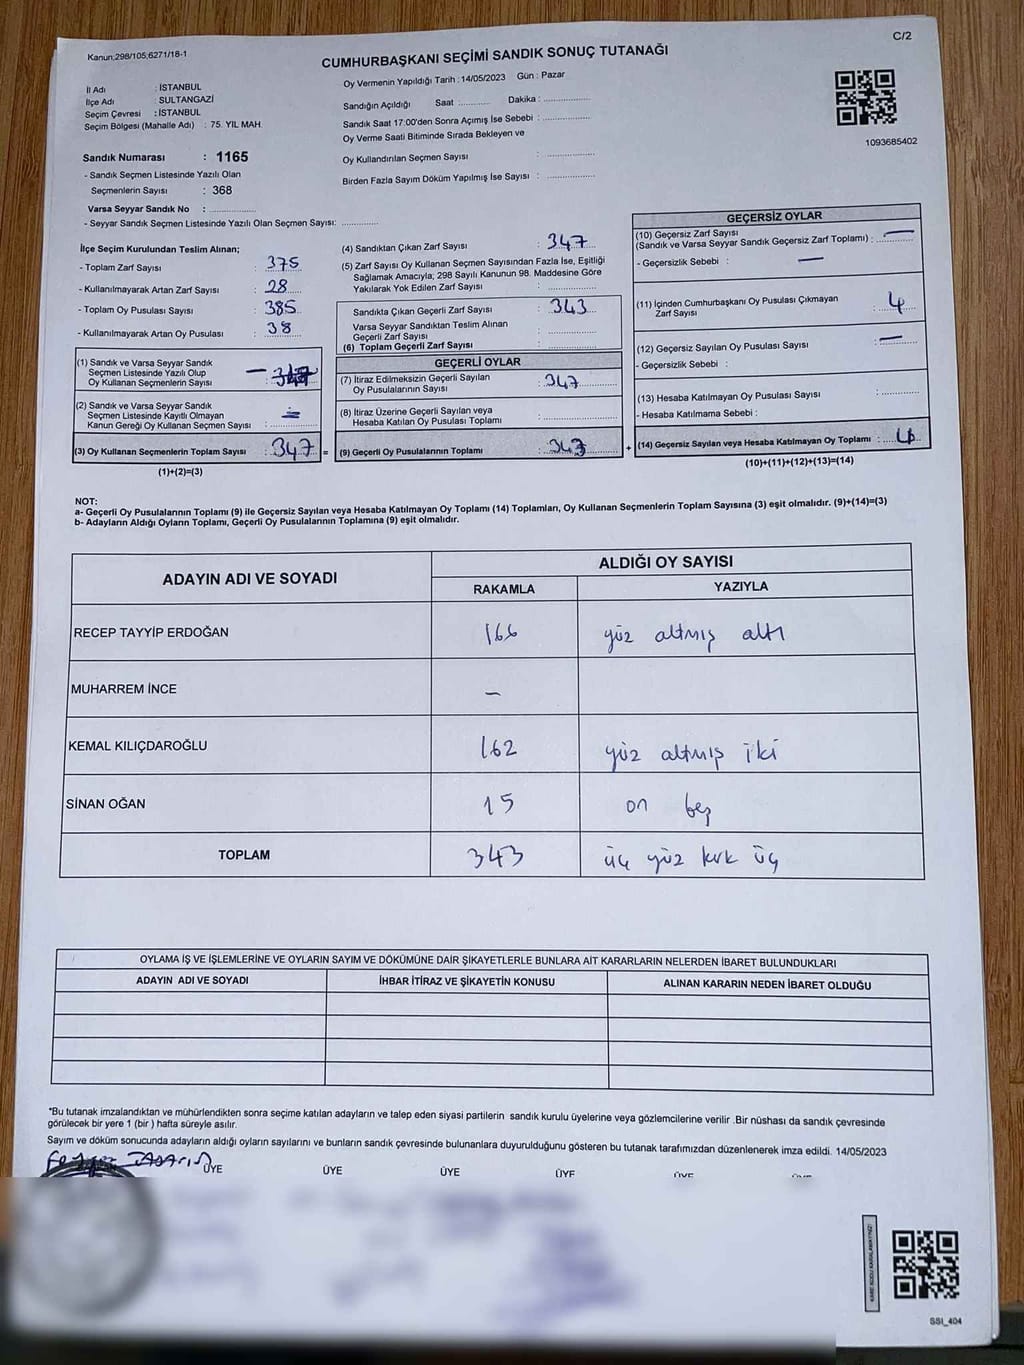 C/2
Kanun:298/105;6271/18-1
CUMHURBAŞKANI SEÇİMİ SANDIK SONUÇ TUTANAĞI
İl Adı : İSTANBUL
İlçe Adı : SULTANGAZİ
Seçim Çevresi : İSTANBUL
Seçim Bölgesi (Mahalle Adı) : 75. YIL MAH.
Sandık Numarası : 1165
- Sandık Seçmen Listesinde Yazılı Olan
Seçmenlerin Sayısı : 368
Varsa Seyyar Sandık No : ............
- Seyyar Sandık Seçmen Listesinde Yazılı Olan Seçmen Sayısı: ............
Oy Vermenin Yapıldığı Tarih : 14/05/2023 Gün : Pazar
Sandığın Açıldığı Saat ........... Dakika : ...............
Sandık Saat 17:00'den Sonra Açımış İse Sebebi : ...............
Oy Verme Saati Bitiminde Sırada Bekleyen ve
Oy Kullandırılan Seçmen Sayısı : ...............
Birden Fazla Sayım Döküm Yapılmış İse Sayısı : ...............
1093685402
İlçe Seçim Kurulundan Teslim Alınan;
- Toplam Zarf Sayısı : 375
- Kullanılmayarak Artan Zarf Sayısı : 28
- Toplam Oy Pusulası Sayısı : 385
- Kullanılmayarak Artan Oy Pusulası : 38
(1) Sandık ve Varsa Seyyar Sandık
Seçmen Listesinde Yazılı Olup
Oy Kullanan Seçmenlerin Sayısı : – 347
(2) Sandık ve Varsa Seyyar Sandık
Seçmen Listesinde Kayıtlı Olmayan
Kanun Gereği Oy Kullanan Seçmen Sayısı :
(3) Oy Kullanan Seçmenlerin Toplam Sayısı : 347 =
(1)+(2)=(3)
(4) Sandıktan Çıkan Zarf Sayısı : 347
(5) Zarf Sayısı Oy Kullanan Seçmen Sayısından Fazla İse, Eşitliği
Sağlamak Amacıyla; 298 Sayılı Kanunun 98. Maddesine Göre
Yakılarak Yok Edilen Zarf Sayısı :
Sandıkta Çıkan Geçerli Zarf Sayısı : 343
Varsa Seyyar Sandıktan Teslim Alınan
Geçerli Zarf Sayısı :
(6) Toplam Geçerli Zarf Sayısı :
GEÇERLİ OYLAR
(7) İtiraz Edilmeksizin Geçerli Sayılan
Oy Pusulalarının Sayısı : 347
(8) İtiraz Üzerine Geçerli Sayılan veya
Hesaba Katılan Oy Pusulası Toplamı :
(9) Geçerli Oy Pusulalarının Toplamı : 343 +
GEÇERSİZ OYLAR
(10) Geçersiz Zarf Sayısı
(Sandık ve Varsa Seyyar Sandık Geçersiz Zarf Toplamı) : —
- Geçersizlik Sebebi : —
(11) İçinden Cumhurbaşkanı Oy Pusulası Çıkmayan
Zarf Sayısı : 4
(12) Geçersiz Sayılan Oy Pusulası Sayısı : —
- Geçersizlik Sebebi :
(13) Hesaba Katılmayan Oy Pusulası Sayısı :
- Hesaba Katılmama Sebebi :
(14) Geçersiz Sayılan veya Hesaba Katılmayan Oy Toplamı : 4
(10)+(11)+(12)+(13)=(14)
NOT:
a- Geçerli Oy Pusulalarının Toplamı (9) ile Geçersiz Sayılan veya Hesaba Katılmayan Oy Toplamı (14) Toplamları, Oy Kullanan Seçmenlerin Toplam Sayısına (3) eşit olmalıdır. (9)+(14)=(3)
b- Adayların Aldığı Oyların Toplamı, Geçerli Oy Pusulalarının Toplamına (9) eşit olmalıdır.
ADAYIN ADI VE SOYADI
ALDIĞI OY SAYISI
RAKAMLA YAZIYLA
RECEP TAYYİP ERDOĞAN 166 yüz altmış altı
MUHARREM İNCE –
KEMAL KILIÇDAROĞLU 162 yüz altmış iki
SİNAN OĞAN 15 on beş
TOPLAM 343 üç yüz kırk üç
OYLAMA İŞ VE İŞLEMLERİNE VE OYLARIN SAYIM VE DÖKÜMÜNE DAİR ŞİKAYETLERLE BUNLARA AİT KARARLARIN NELERDEN İBARET BULUNDUKLARI
ADAYIN ADI VE SOYADI İHBAR İTİRAZ VE ŞİKAYETİN KONUSU ALINAN KARARIN NEDEN İBARET OLDUĞU
*Bu tutanak imzalandıktan ve mühürlendikten sonra seçime katılan adayların ve talep eden siyasi partilerin sandık kurulu üyelerine veya gözlemcilerine verilir .Bir nüshası da sandık çevresinde
görülecek bir yere 1 (bir ) hafta süreyle asılır.
Sayım ve döküm sonucunda adayların aldığı oyların sayılarını ve bunların sandık çevresinde bulunanlara duyurulduğunu gösteren bu tutanak tarafımızdan düzenlenerek imza edildi. 14/05/2023
ÜYE ÜYE ÜYE ÜYE ÜYE
SSI_404